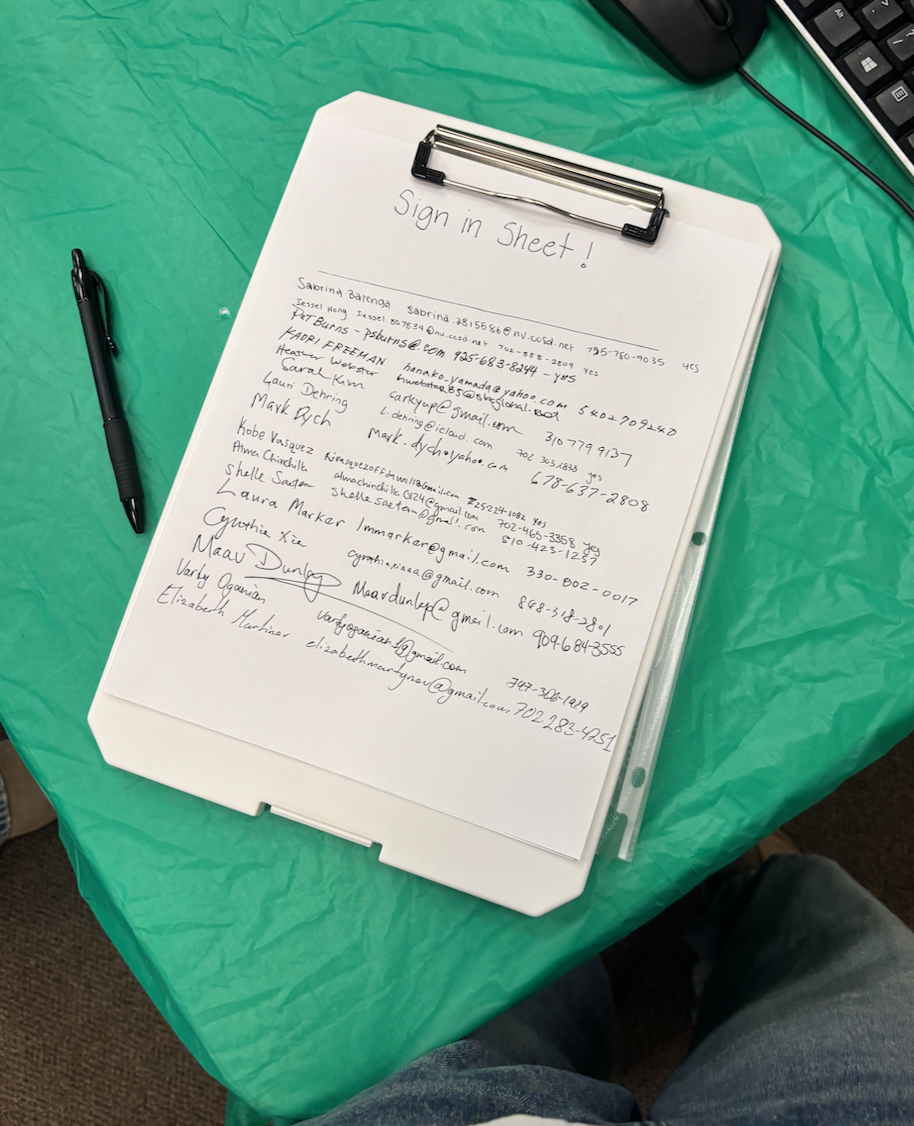 Alt
Sign in Sheet!
Sabrina Balenga sabrina.2815586@nv.ccsd.net 725-780-9035 yes
Jessel Hong Jessel.807839@nv.ccsd.net 702-888-2809 Yes
Pat Burns - psburns@.com 925-683-8244 - yes
KAORI FREEMAN hanako_yamada@yahoo.com 5402709240
Heather Webster hwebster85@sbcglobal.net
Sarah Kim sarkyup@gmail.com 310 779 9137
Lauri Dehring L.dehring@icloud.com 702 303 1878 yes
Mark Dych mark.dych@yahoo.com 678-637-2808
Kobe Vasquez 725224-1082 Yes
Alma Chinchilla almachinchilla0124@gmail.com 702-465-3358 yes
Shelle Saeton shelle.saeton@gmail.com 510-423-1257
Laura Marker lmmarker@gmail.com 330-802-0017
Cynthia Xia 848-318-2801
Maav Dunlap Maavdunlap@gmail.com 909-684-3555
Vardy Oganian vardyoganian1@gmail.com 747-308-1929
Elizabeth Martinez elizabethmartynov@gmail.com 702 283-4751